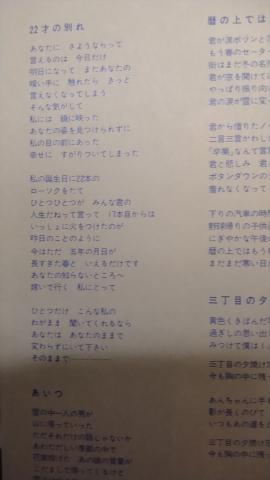 22才の別れ
あなたに さようならって
言えるのは 今日だけ
明日になって またあなたの
暖い手に 触れたら きっと
言えなくなってしまう
そんな気がして
私には 鏡に映った
あなたの姿を見つけられずに
私の目の前にあった
幸せに すがりついてしまった
私の誕生日に22本の
ローソクをたて
ひとつひとつが みんな君の
人生だねって言って 17本目からは
いっしょに火をつけたのが
昨日のことのように
今はただ 五年の月日が
長すぎた春と いえるだけです
あなたの知らないところへ
嫁いで行く 私にとって
ひとつだけ こんな私の
わがまま 聞いてくれるなら
あなたは あなたのままで
変わらずにいて下さい
そのままで
あいつ
雪の中一人の男が
山に帰っていった
ただそれだけの話じゃないか
あわただしい季節の中で
花束抱えた あの娘の言葉が
こだまして帰ってくるけど
暦の上では
君が涙ポツンと
もう春のセータ
街はまだ冬の名
君が窓を開けて
やっぱり振り向
君の涙が雪に変
君から借りたノ
二言三言かわし
「卒業」なんて言
君と悲しみ 君
ボタンダウンの
着れなくなって
下りの汽車の時
野球帰りの子供
にぎやかな午後
暦の上ではもう
まだまだ寒い日
三丁目の夕
黄色くきばんだ
過ぎしの思い出
みつけて僕は
三丁目の夕焼け
今も胸の中に残
あんちゃんに手
影が長くのびて
いつもあの道を
三丁目の夕焼け
今も胸の中に残